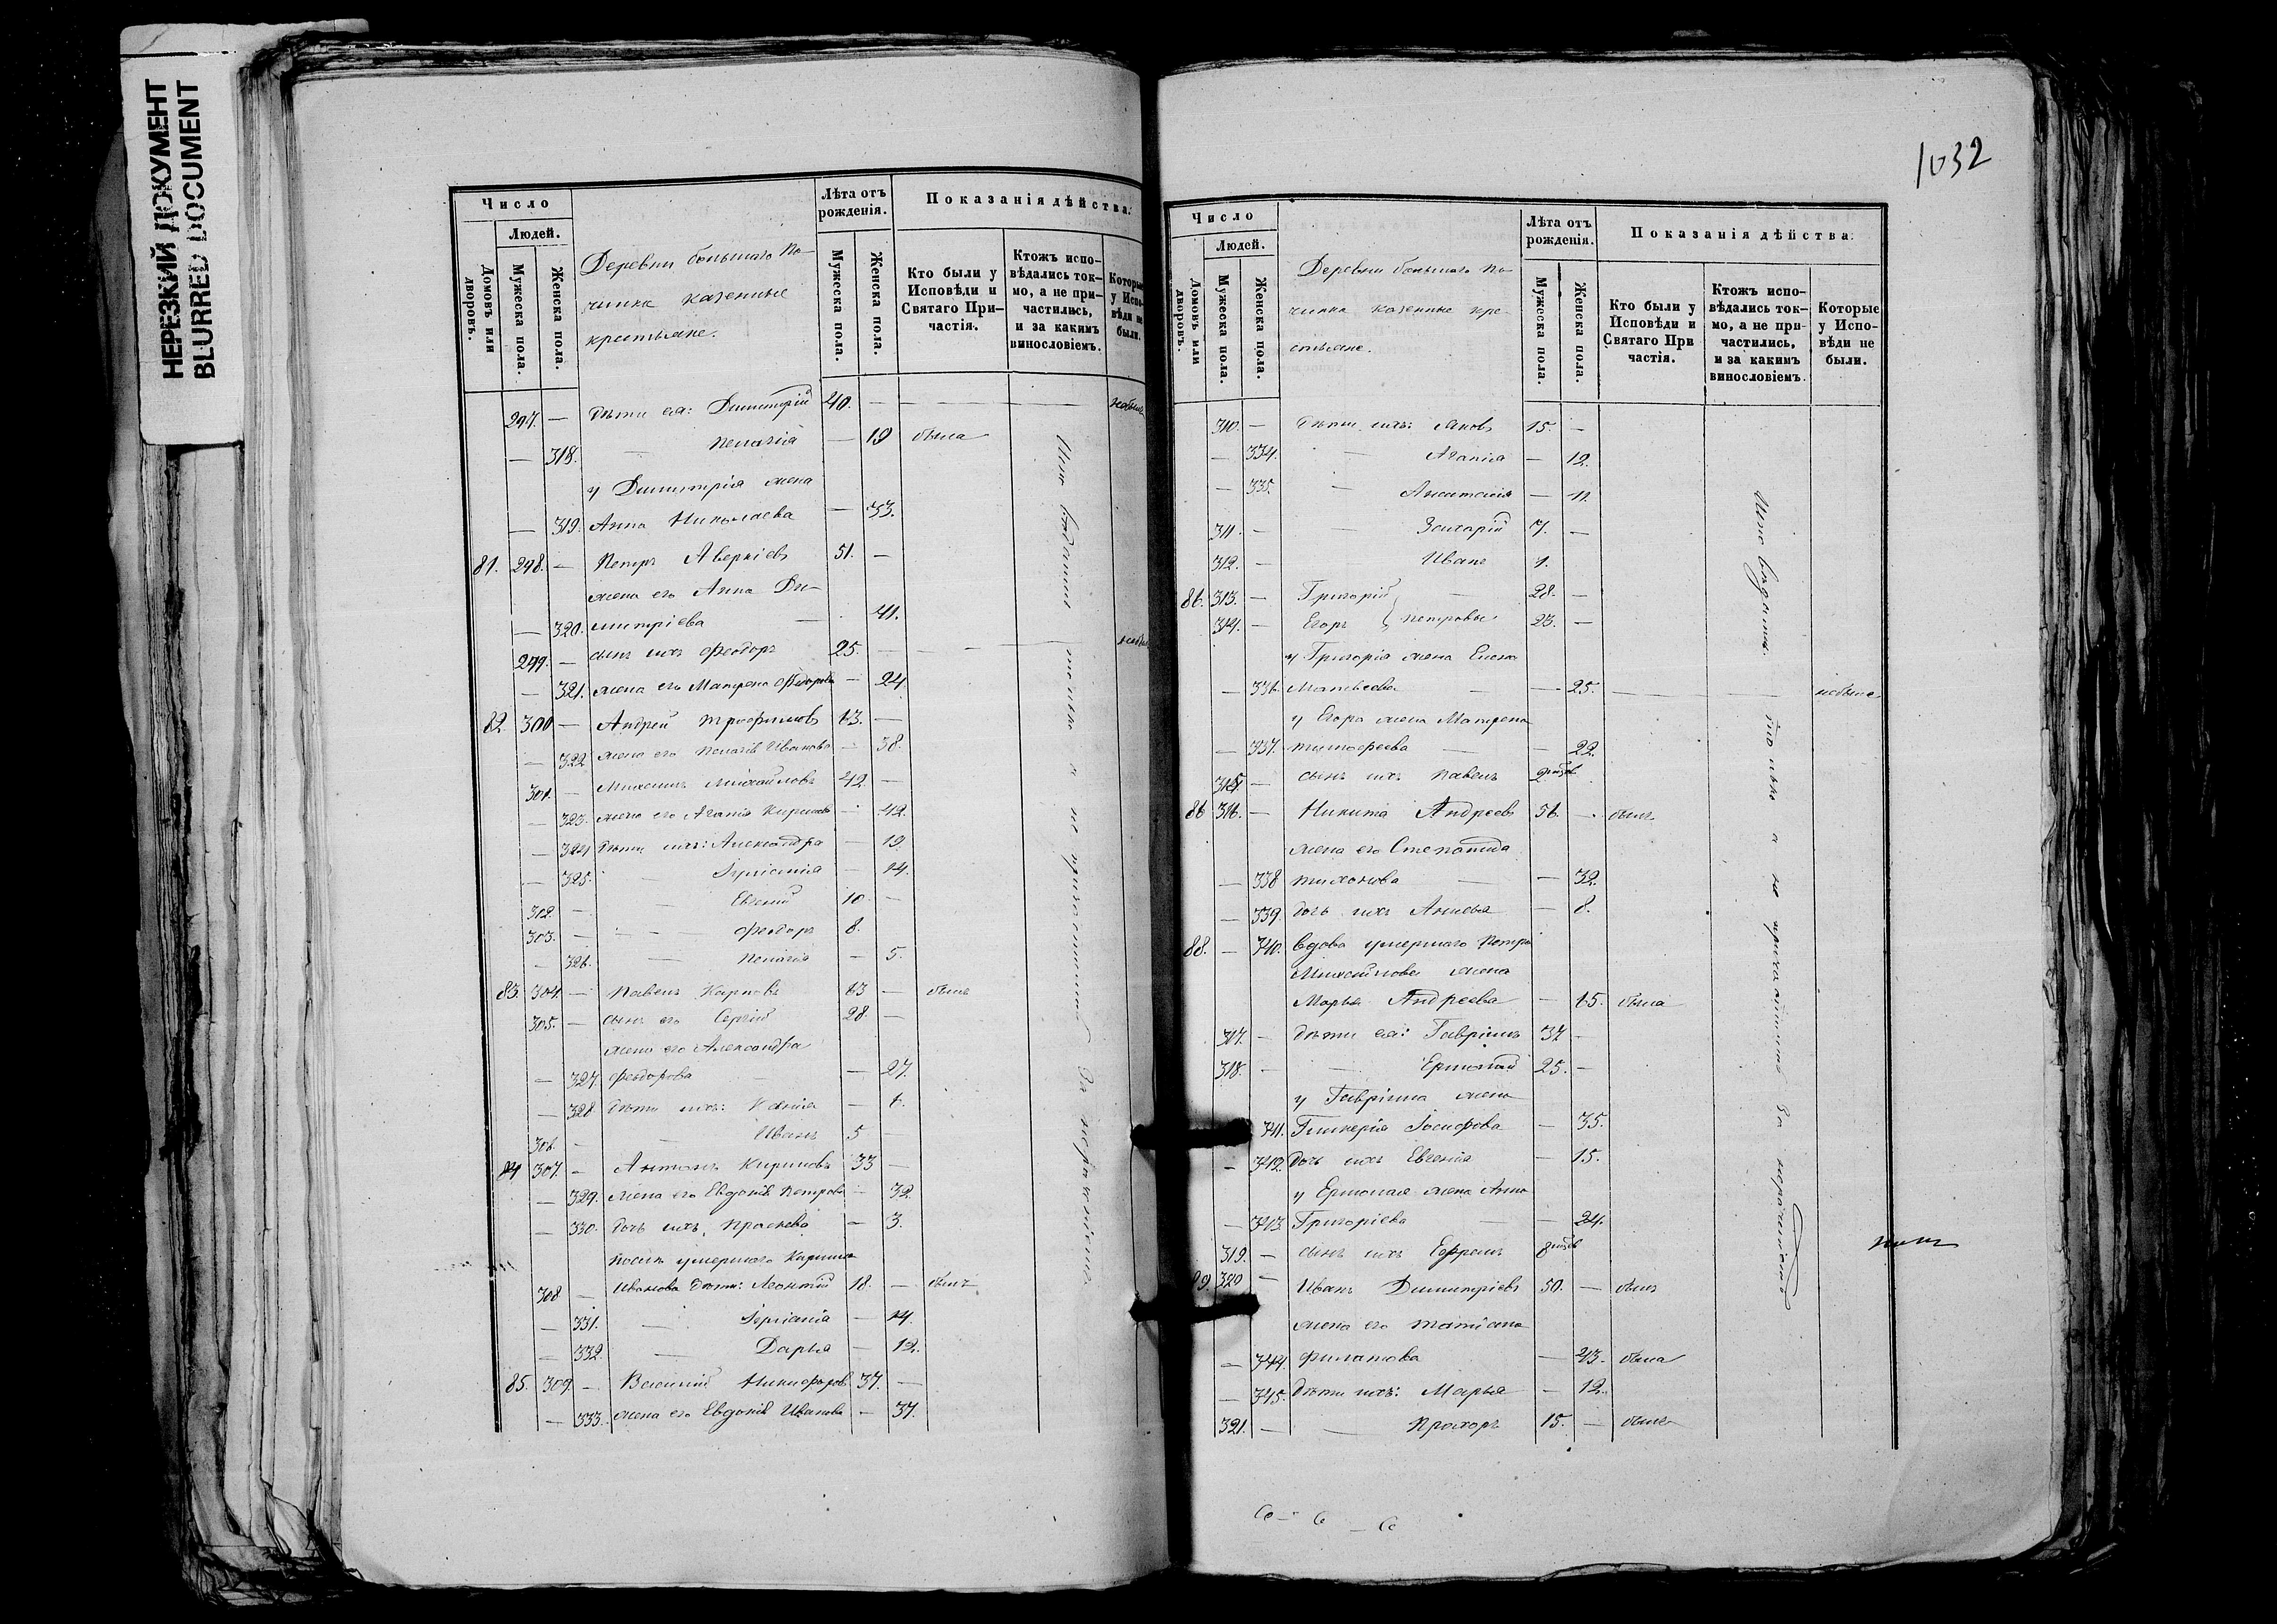 НЕРЕЗКИЙ ДОКУМЕНТ
BLURRED DOCUMENT
Число
Людей.
Домовъ или дворовъ.
Мужеска пола.
Женска пола.
Деревни большаго По-
чинка казенные
крестьяне.
Лѣта отъ рожденія.
Мужеска пола.
Женска пола.
Показанія дѣйства.
Кто были у Исповѣди и Святаго При-частія.
Ктожъ испо-вѣдались ток-мо, а не при-частились, и за какимъ винословіемъ.
Которые у Испо-вѣди не были.
297. — дѣти ея: Димитрій 40. — — — небылъ
— 318. — Пелагія — 19 была
у Димитрія жена
— 319. Анна Николаева — 33.
81. 298. — Петръ Аверкіевъ 51. —
жена его Анна Ди-
— 320. митріева — 41.
299. — сынъ ихъ Феодоръ 25. — —
— 321. жена его Матрена Федорова — 24
82. 300 — Андрей Трофимовъ 63. —
— 322 жена его Пелагія Иванова — 38.
301. — Михаилъ Михайловъ 42. —
— 323. жена его Агапія Кирилова — 42.
— 324 дѣти ихъ: Александра — 19.
— 325. — — 14.
302. — — Евгений 10. —
303. — — Феодоръ 8.
— 326. — Пелагія — 5.
83. 304. — Павелъ Карповъ 63 — былъ
305. — сынъ его Сергій 28. —
жена его Александра
— 327. Феодорова — — 27.
— 328 дѣти ихъ: — 6.
306. — — Иванъ 5
84 307. — Антонъ Кириловъ 33 —
— 329. жена его Евдокія Петрова — 32.
— 330. дочь ихъ Прасковья — 3.
послѣ умершаго Кирила
308 — Иванова дѣти: Леонтій 18. — былъ
— 331. — — 14.
— 332. — Дарья — 12.
85. 309. — Василий Никифоровъ 37. —
— 333. жена его Евдокія Иванова — 37.
а не
1032
Число
Людей.
Домовъ или дворовъ.
Мужеска пола.
Женска пола.
Деревни большаго По-
чинка казенные кре-
стьяне.
Лѣта отъ рожденія.
Мужеска пола.
Женска пола.
Показанія дѣйства.
Кто были у Исповѣди и Святаго При частія.
Ктожъ испо-вѣдались ток-мо, а не при-частились, и за какимъ винословіемъ.
Которые у Испо-вѣди не были.
310. — дѣти ихъ: Яковъ 15. —
— 334. — Агапія — 12.
— 335. — Анастасія — 11.
311. — — Захарій 7. —
312. — Иванъ 1.
86. 313. — Григорій — 28. —
314. — Егоръ } Петровы 23. —
у Григорія жена Елена
— 336. Матвѣева — — 25. — — небыла
у Егора жена Матрена
— 337. Тимофеева — — 22.
315. — сынъ ихъ Павелъ
86 316. — Никита Андреевъ 56. — былъ
жена его Степанида
— 338 Тихонова — — 32.
— 339 дочь ихъ — 8.
88. — 340. Вдова умершаго Петра
Михайлова жена
Марья Андреева — 65. была
317. — дѣти ея: Гавріилъ 37 —
318. — — Ермолай 25. —
у Гавріила жена
341. Гликерія Іосифова — 35.
— 342 дочь ихъ Евгенія — 15.
у Ермолая жена Анна
— 343. Григоріева — — 24.
319. — сынъ ихъ Ефремъ
89. 320 — Иванъ Димитріевъ 50. — былъ
жена его Татіана
— 344. Филатова — 43. была
— 345. дѣти ихъ: Марья — 12.
321. — — Прохоръ 15. — былъ
только а не